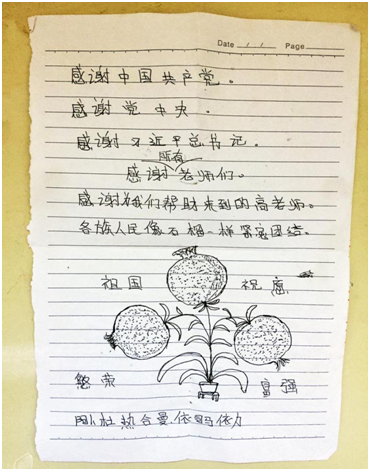 Date / / Page
感谢中国共产党。
感谢党中央。
感谢习近平总书记。
感谢所有老师们。
感谢为我们帮助来到的高老师。
各族人民像石榴一样紧密团结。
祖国 祝愿
繁荣 富强
热合曼·依